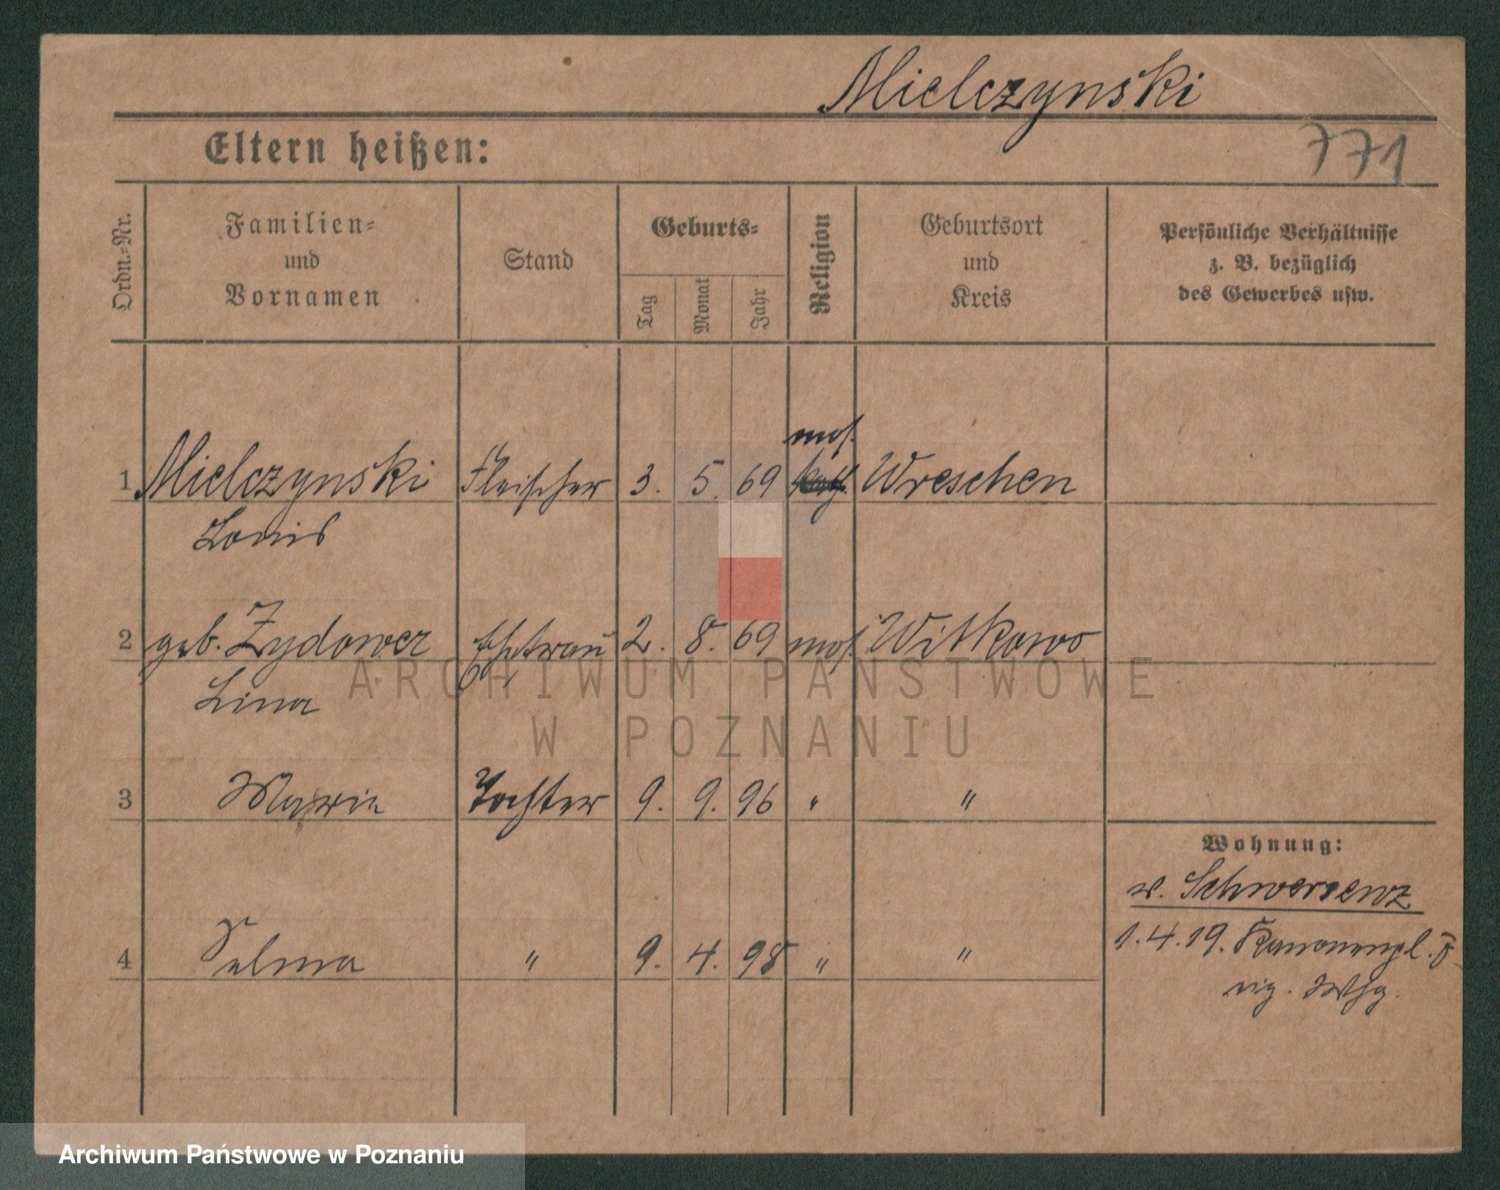 Mielczynski
771
Eltern heißen:
Ordn.-Nr.
Familien- und Vornamen
Stand
Geburts-
Tag
Monat
Jahr
Religion
Geburtsort und Kreis
Persönliche Verhältnisse
z. B. bezüglich
des Gewerbes usw.
mos.
1 Mielczynski Fleischer 3. 5. 69 Wreschen
Louis
2 geb. Zydower Ehefrau 2. 8. 69 mos. Witkowo
Lina
3 Marie Tochter 9. 9. 96 " "
Wohnung:
v. Schwersenz
1.4.19. Kanonenpl. 8
4 Selma " 9. 4. 98 " "
eig. Whg.
ARCHIWUM PAŃSTWOWE
W POZNANIU
Archiwum Państwowe w Poznaniu